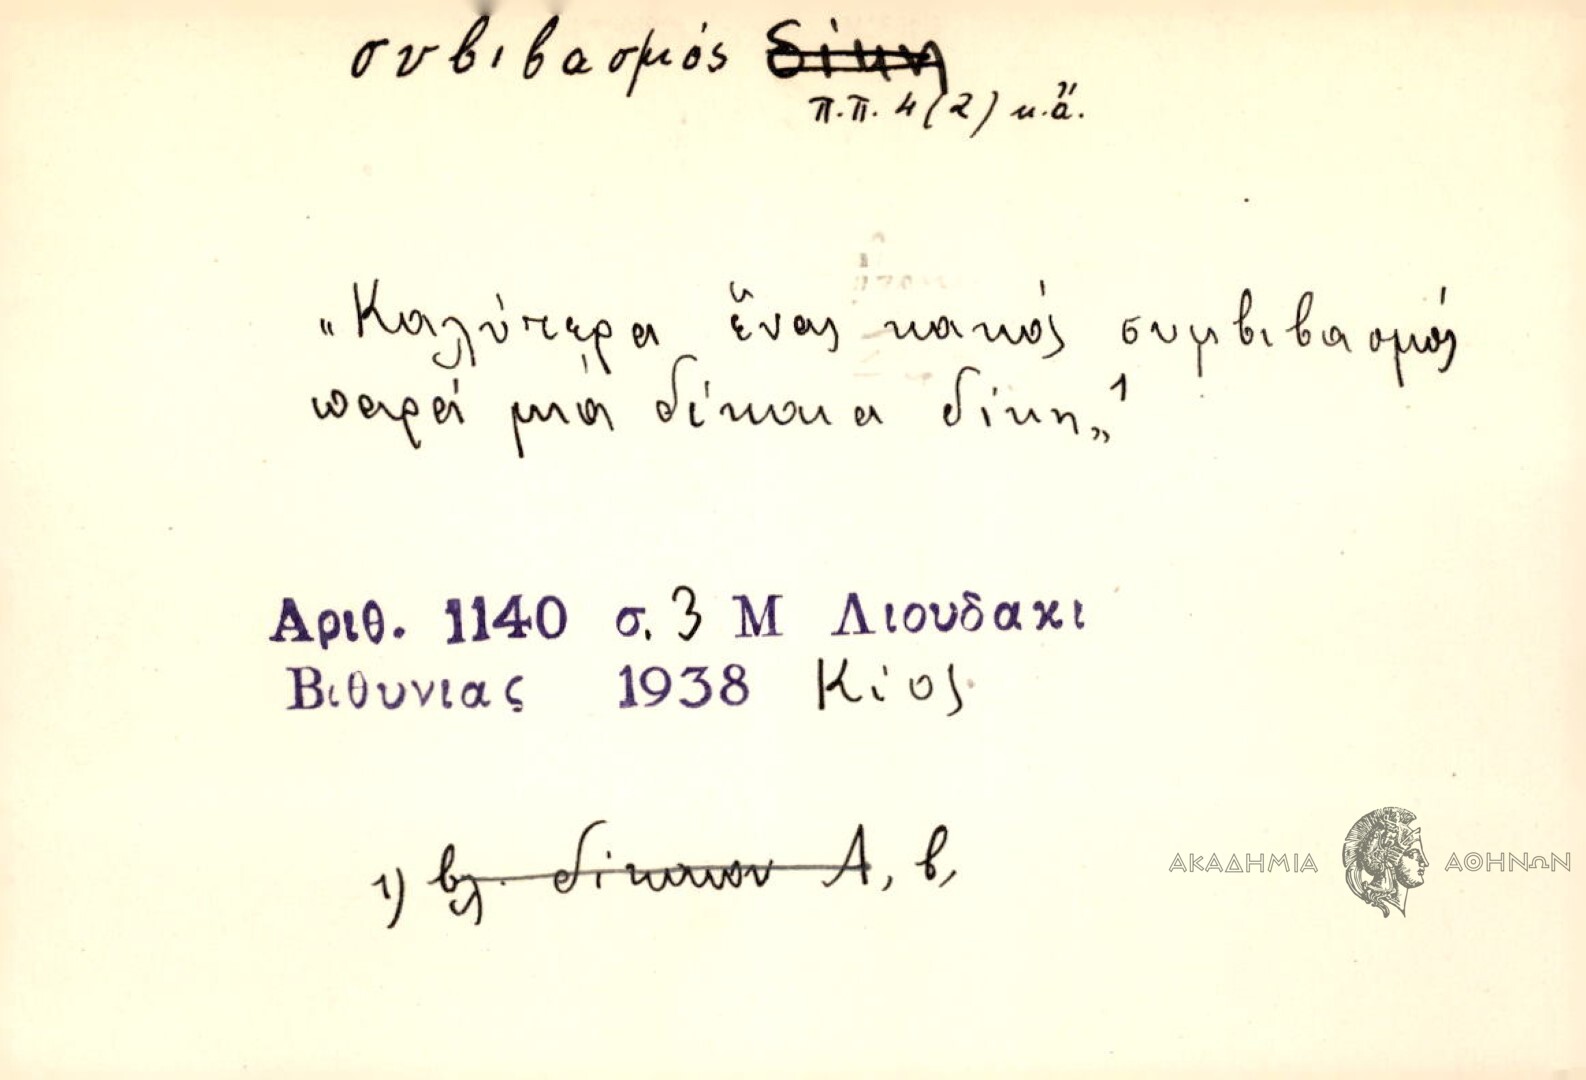 συβιβασμός δίκη
π.π. 4(2) κ.ἄ.
„Καλύτερα ἕνας κακός συμβιβασμός
παρά μιά δίκαια δίκη„1
Αριθ. 1140 σ. 3 Μ Λιουδακι
Βιθυνιας 1938 Κίος
1) βλ. δίκαιον Α, β,
ΑΚΑΔΗΜΙΑ ΑΘΗΝΩΝ